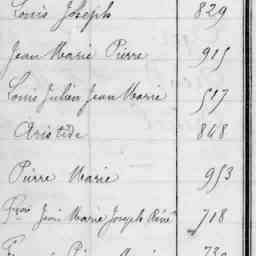 Louis Joseph 829
Jean Marie Pierre 915
Louis Julien Jean Marie 517
Aristide 848
Pierre Marie 953
Fçois Jean Marie Joseph René 718
Pierre Marie 730